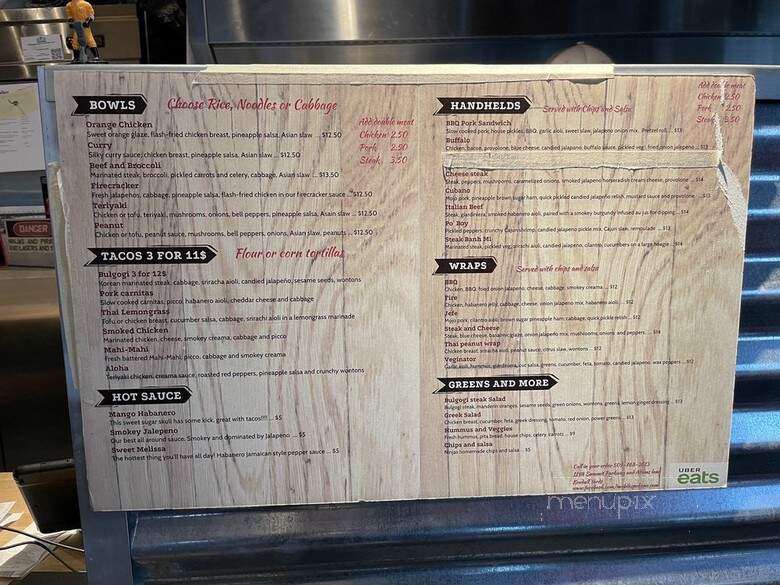 BOWLS
Choose Rice, Noodles or Cabbage
Add double meat
Chicken 2.50
Pork 2.50
Steak 3.50
Orange Chicken
Sweet orange glaze, flash-fried chicken breast, pineapple salsa, Asian slaw ... $12.50
Curry
Silky curry sauce, chicken breast, pineapple salsa, Asian slaw ... $12.50
Beef and Broccoli
Marinated steak, broccoli, pickled carrots and celery, cabbage, Asian slaw ... $13.50
Firecracker
Fresh jalapeños, cabbage, pineapple salsa, flash-fried chicken in our firecracker sauce ... $12.50
Teriyaki
Chicken or tofu, teriyaki, mushrooms, onions, bell peppers, pineapple salsa, Asain slaw ... $12.50
Peanut
Chicken or tofu, peanut sauce, mushrooms, bell peppers, onions, Asian slaw, peanuts ... $12.50
TACOS 3 FOR 11$
Flour or corn tortillas
Bulgogi 3 for 12$
Korean marinated steak, cabbage, sriracha aioli, candied jalapeño, sesame seeds, wontons
Pork carnitas
Slow cooked carnitas, picco, habanero aioli, cheddar cheese and cabbage
Thai Lemongrass
Tofu or chicken breast, cucumber salsa, cabbage, srirachi aioli in a lemongrass marinade
Smoked Chicken
Marinated chicken, cheese, smokey creama, cabbage and picco
Mahi-Mahi
Fresh battered Mahi-Mahi, picco, cabbage and smokey creama
Aloha
Teriyaki chicken, creama sauce, roasted red peppers, pineapple salsa and crunchy wontons
HOT SAUCE
Mango Habanero
This sweet sugar skull has some kick, great with tacos!!!! ... $5
Smokey Jalepeno
Our best all around sauce. Smokey and dominated by Jalapeno ... $5
Sweet Melissa
The hottest thing you'll have all day! Habanero Jamaican style pepper sauce ... $5
HANDHELDS
Served with Chips and Salsa
Add double meat
Chicken 2.50
Pork 2.50
Steak 3.50
BBQ Pork Sandwich
Slow cooked pork, house pickles, BBQ, garlic aioli, sweet slaw, jalapeno onion mix. Pretzel roll ... $13
Buffalo
Chicken, bacon, provolone, blue cheese, candied jalapeno, buffalo sauce, pickled veg, fried onion jalapeno ... $13
Cheese steak
Steak, peppers, mushrooms, caramelized onions, smoked jalapeno horseradish cream cheese, provolone ... $14
Cubano
Mojo pork, pineapple brown sugar ham, quick pickled candied jalapeño relish, mustard sauce and provolone ... $13
Italian Beef
Steak, giardiniera, smoked habanero aioli, paired with a smokey burgundy infused au jus for dipping ... $14
Po' Boy
Pickled peppers, crunchy Cajun shrimp, cabbage, candied jalapeno pickle mix, Cajun slaw, remoulade ... $13
Steak Banh Mi
Marinated steak, pickled veg, srirachi aioli, candied jalapeno, cilantro, cucumbers on a large hoagie ... $14
WRAPS
Served with chips and salsa
BBQ
Chicken, BBQ, fried onion jalapeno, cheese, cabbage, smokey creama ... $12
Fire
Chicken, habanero jelly, cabbage, cheese, onion jalapeno mix, habanero aioli ... $12
Jefe
Mojo pork, cilantro aioli, brown sugar pineapple ham, cabbage, quick pickle relish ... $12
Steak and Cheese
Steak, blue cheese, balsamic glaze, onion jalapeño mix, mushrooms, onions, and peppers ... $14
Thai peanut wrap
Chicken breast, sriracha aioli, peanut sauce, citrus slaw, wontons ... $12
Veginator
Garlic aioli, hummus, giardiniera, cuc salsa, greens, cucumber, feta, tomato, candied jalapeno, wax peppers ... $12
GREENS AND MORE
Bulgogi steak Salad
Bulgogi steak, mandarin oranges, sesame seeds, green onions, wontons, greens, lemon ginger dressing ... $13
Greek Salad
Chicken breast, cucumber, feta, greek dressing, tomato, red onion, power greens ... $13
Hummus and Veggies
Fresh hummus, pita bread, house chips, celery, carrots ... $9
Chips and salsa
Ninjas homemade chips and salsa ... $5
Call in your order 509-
Summit Parkway and Adams
Kendall Yards
UBER
eats
DANGER
menupix